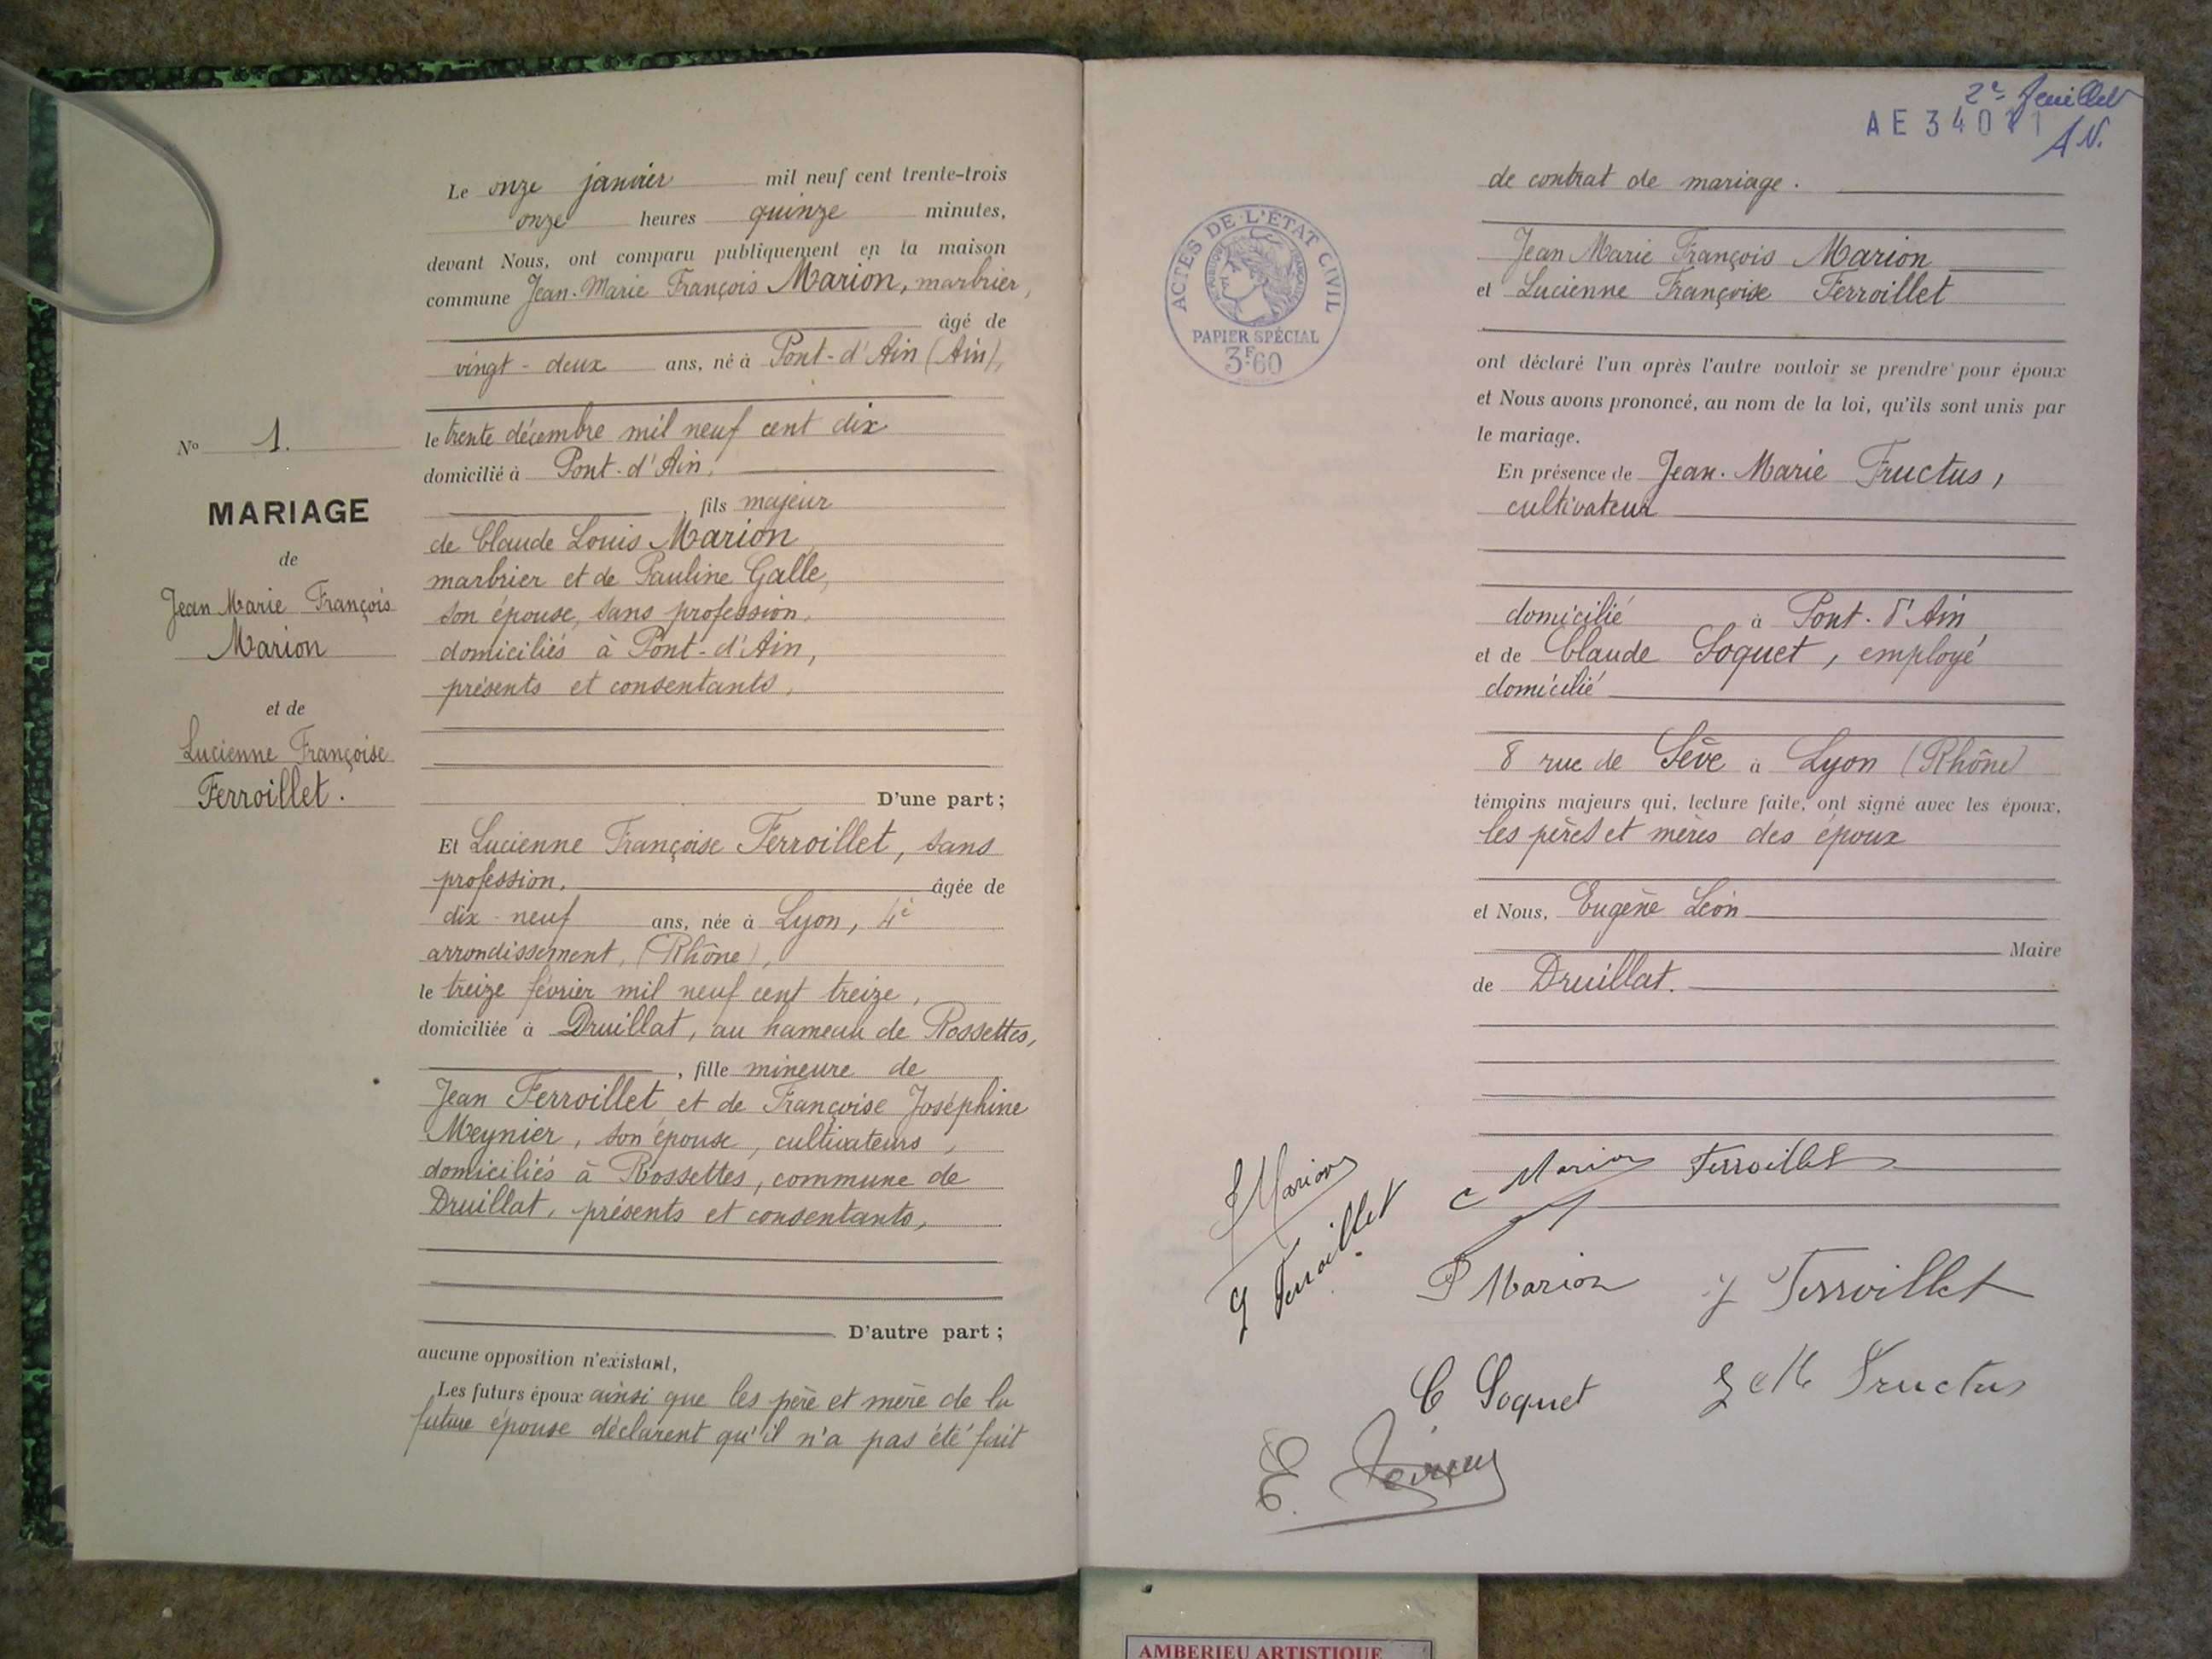 Le onze janvier mil neuf cent trente-trois
onze heures quinze minutes,
devant Nous, ont comparu publiquement en la maison
commune Jean-Marie François Marion, marbrier,
âgé de
vingt-deux ans, né à Pont-d'Ain (Ain),
le trente décembre mil neuf cent dix
domicilié à Pont-d'Ain,
, fils majeur
de Claude Louis Marion
marbrier et de Pauline Galle,
son épouse, sans profession,
domiciliés à Pont-d'Ain,
présents et consentants,
D'une part;
Et Lucienne Françoise Ferroillet, sans
profession, âgée de
dix-neuf ans, née à Lyon, 4è
arrondissement, (Rhône),
le treize février mil neuf cent treize,
domiciliée à Druillat, au hameau de Rossettes,
, fille mineure de
Jean Ferroillet et de Françoise Joséphine
Meynier, son épouse, cultivateurs,
domiciliés à Rossettes, commune de
Druillat, présents et consentants,
D'autre part;
aucune opposition n'existant,
Les futurs époux ainsi que les père et mère de la
future épouse déclarent qu'il n'a pas été fait
No 1.
MARIAGE
de
Jean Marie François
Marion
et de
Lucienne Françoise
Ferroillet.
2e feuillet
AE 340
AN.
ACTES DE L'ÉTAT CIVIL
RÉPUBLIQUE FRANÇAISE
PAPIER SPÉCIAL
3F60
de contrat de mariage.
Jean Marie François Marion
et Lucienne Françoise Ferroillet
ont déclaré l'un après l'autre vouloir se prendre pour époux
et Nous avons prononcé, au nom de la loi, qu'ils sont unis par
le mariage.
En présence de Jean-Marie Fructus,
cultivateur
domicilié à Pont-d'Ain
et de Claude Soquet, employé
domicilié
8 rue de Sève à Lyon (Rhône)
témoins majeurs qui, lecture faite, ont signé avec les époux,
les pères et mères des époux
et Nous, Eugène Léon
Maire
de Druillat.
J Marion
C Marion Ferroillet
J Ferroillet
P Marion J Ferroillet
C Soquet J M Fructus
E.
AMBERIEU ARTISTIQUE